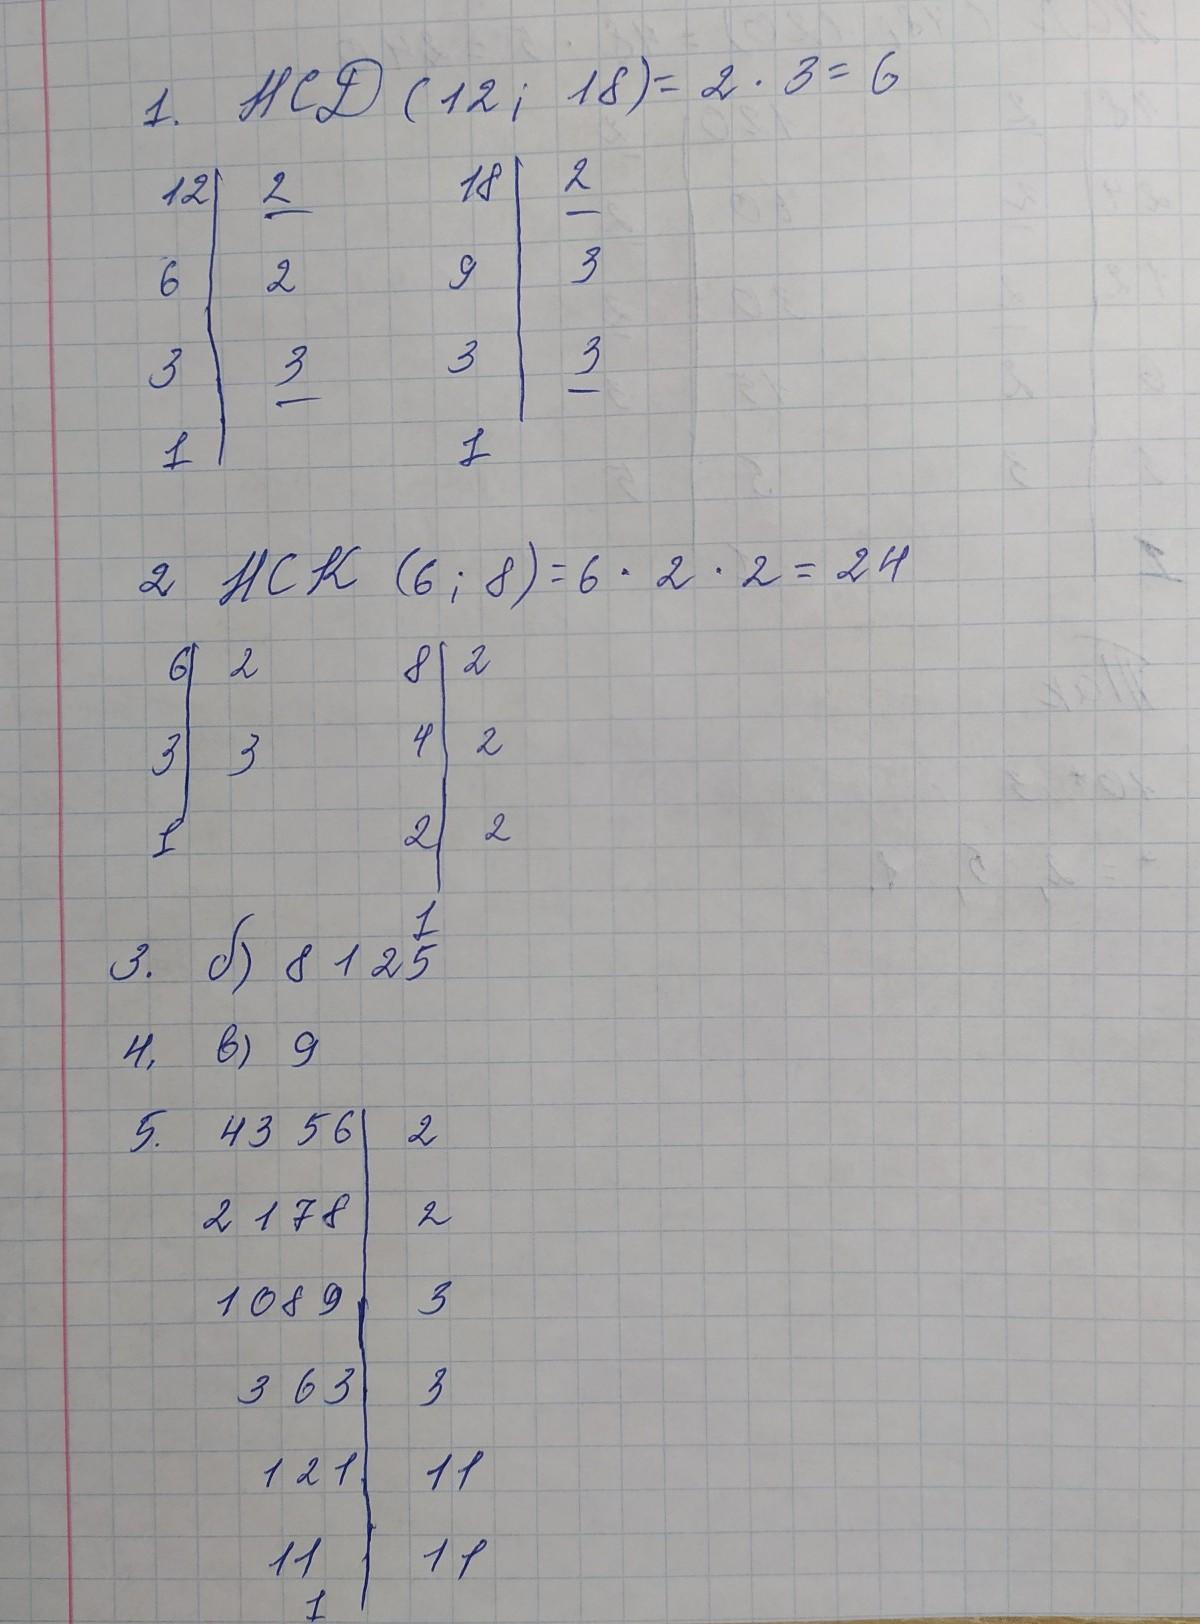 1. НСД (12; 18) = 2 · 3 = 6
12 | 2 18 | 2
6 | 2 9 | 3
3 | 3 3 | 3
1 | 1
2 НСК (6; 8) = 6 · 2 · 2 = 24
6 | 2 8 | 2
3 | 3 4 | 2
1 2 | 2
1
3. б) 8125
4. в) 9
5. 4356 | 2
2178 | 2
1089 | 3
363 | 3
121 | 11
11 | 11
1